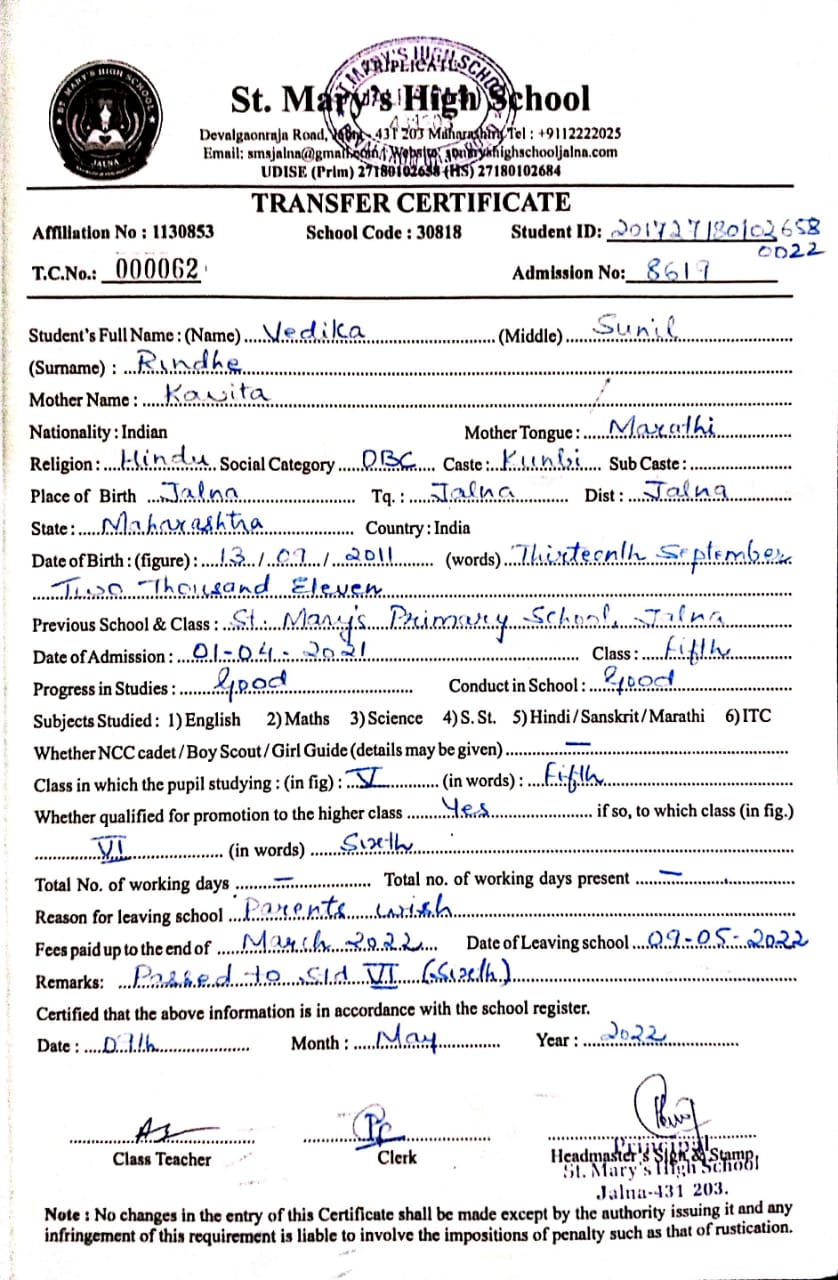 ST. MARY'S HIGH SCHOOL
JALNA
TRIPLICATE
St. Mary's High School
Devalgaonraja Road, Jalna - 431 203 Maharashtra Tel : +9112222025
Email: smsjalna@gmail.com / Website: stmaryshighschooljalna.com
UDISE (Prim) 27180102658 (HS) 27180102684
TRANSFER CERTIFICATE
Affiliation No : 1130853 School Code : 30818 Student ID: 201727180102658
0022
T.C.No.: 000062 Admission No: 8619
Student's Full Name : (Name) Vedika (Middle) Sunil
(Surname) : Rindhe
Mother Name : Kavita
Nationality : Indian Mother Tongue : Marathi
Religion : Hindu Social Category OBC Caste : Kunbi Sub Caste :
Place of Birth Jalna Tq. : Jalna Dist : Jalna
State : Maharashtra Country : India
Date of Birth : (figure) : 13 / 09 / 2011 (words) Thirteenth September
Two Thousand Eleven
Previous School & Class : St. Mary's Primary School, Jalna
Date of Admission : 01-04-2021 Class : Fifth
Progress in Studies : Good Conduct in School : Good
Subjects Studied : 1) English 2) Maths 3) Science 4) S. St. 5) Hindi / Sanskrit / Marathi 6) ITC
Whether NCC cadet / Boy Scout / Girl Guide (details may be given) —
Class in which the pupil studying : (in fig) : V (in words) : Fifth
Whether qualified for promotion to the higher class Yes if so, to which class (in fig.)
VI (in words) Sixth
Total No. of working days — Total no. of working days present —
Reason for leaving school Parents wish
Fees paid up to the end of March 2022 Date of Leaving school 09-05-2022
Remarks: Passed to std VI (Sixth)
Certified that the above information is in accordance with the school register.
Date : 09th Month : May Year : 2022
Class Teacher Clerk Headmaster's Sign & Stamp
Principal
St. Mary's High School
Jalna-431 203.
Note : No changes in the entry of this Certificate shall be made except by the authority issuing it and any
infringement of this requirement is liable to involve the impositions of penalty such as that of rustication.